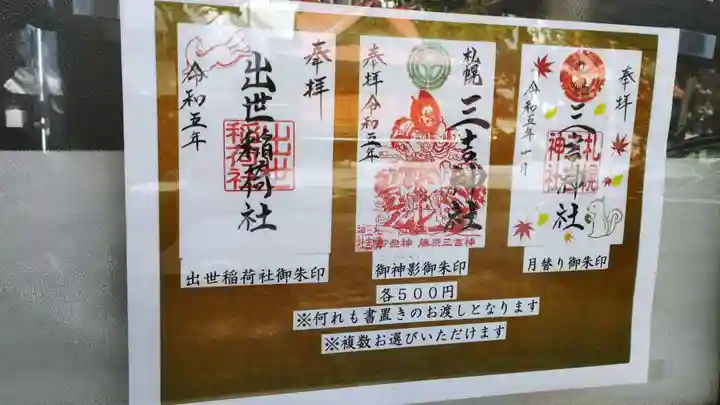 奉拝
出世稲荷社
令和五年
出世
稲荷社
出世稲荷社御朱印
奉拝
札幌
三吉神社
令和五年
御祭神 藤原三吉神
御神影御朱印
奉拝
三吉神社
令和五年十一月
札幌
神社
月替り御朱印
各500円
※何れも書置きのお渡しとなります
※複数お選びいただけます